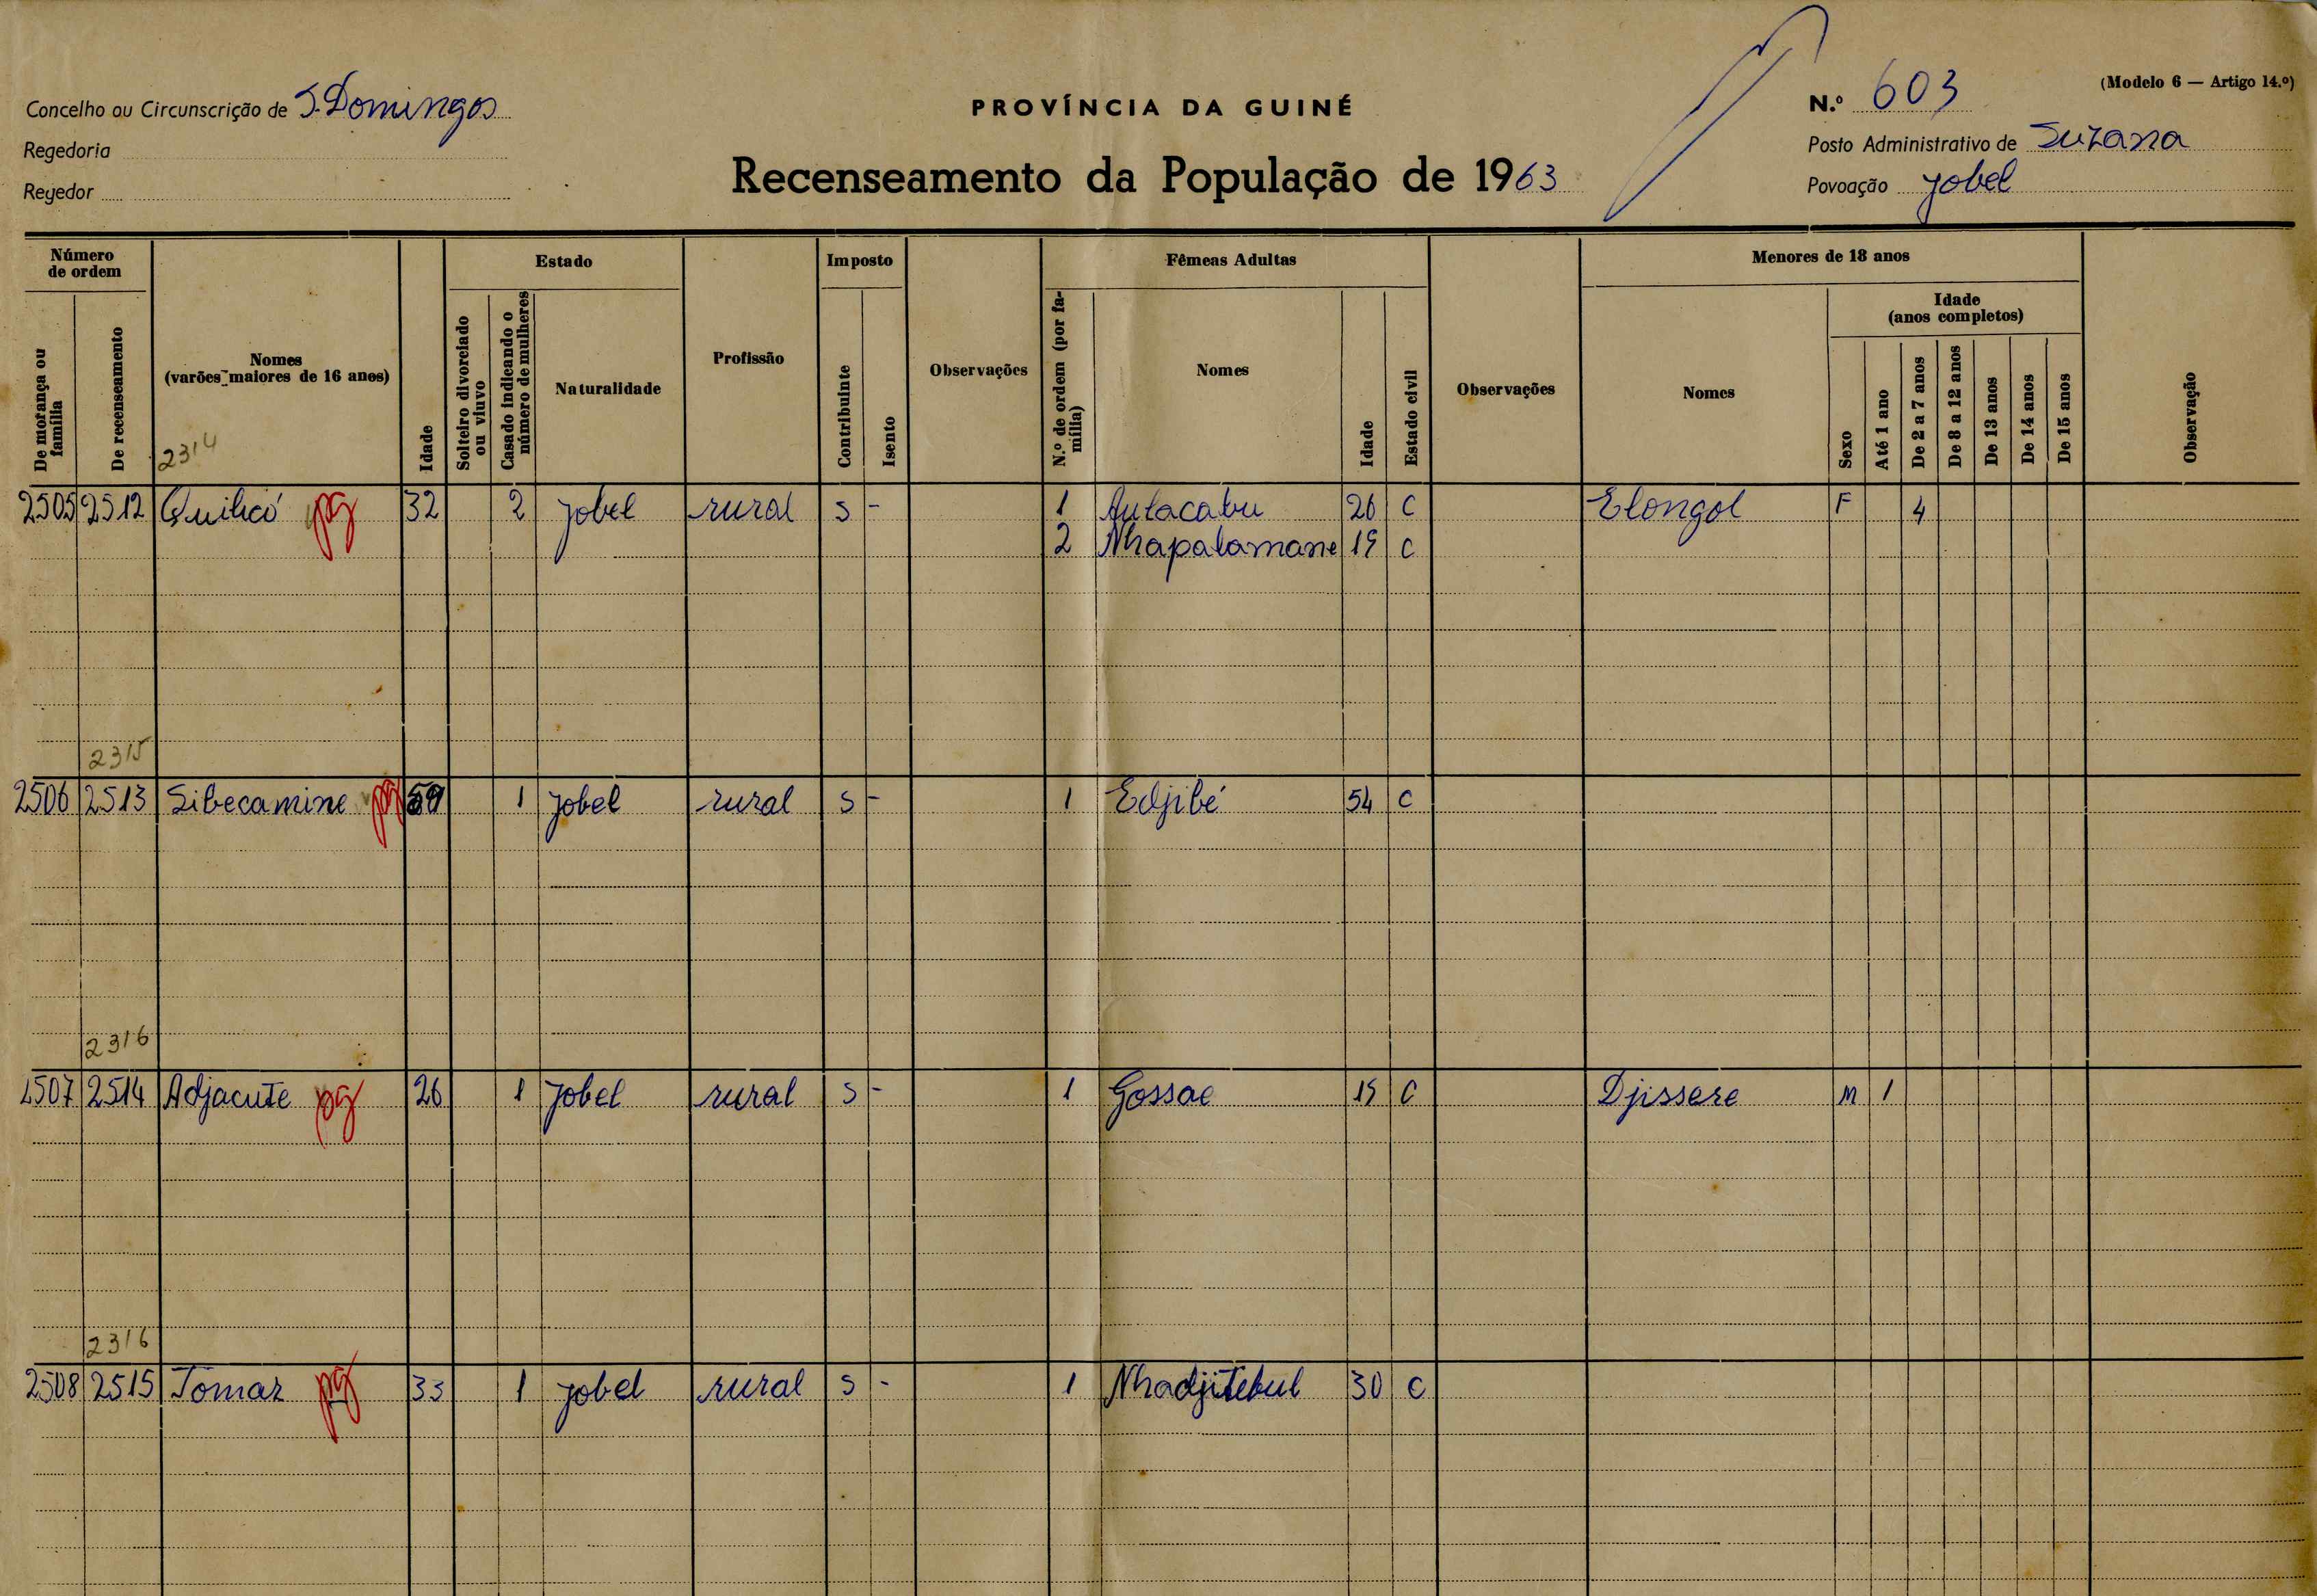 (Modelo 6 — Artigo 14.º)
Concelho ou Circunscrição de S. Domingos
PROVÍNCIA DA GUINÉ
N.º 603
Regedoria
Posto Administrativo de Suzana
Regedor
Recenseamento da População de 1963
Povoação Jobel
Número de ordem
Estado
Imposto
Fêmeas Adultas
Menores de 18 anos
De morança ou família
De recenseamento
Nomes (varões maiores de 16 anos)
Idade
Solteiro divorciado ou viuvo
Casado indicando o número de mulheres
Naturalidade
Profissão
Contribuinte
Isento
Observações
N.º de ordem (por família)
Nomes
Idade
Estado civil
Observações
Nomes
Sexo
Idade (anos completos)
Até 1 ano
De 2 a 7 anos
De 8 a 12 anos
De 13 anos
De 14 anos
De 15 anos
Observação
2314
2505 2512 pg 32 2 Jobel rural S - 1 Aulacabu 26 C Elongol F 4
2 Nhapalamane 19 C
2315
2506 2513 Sibecamine pg 1 Jobel rural S - 1 Edjibé 54 C
2316
2507 2514 Adjacute pg 26 1 Jobel rural S - 1 Gossae 19 C Djissere M 1
2316
2508 2515 Tomaz pg 33 1 Jobel rural S - 1 Nhadjitebul 30 C